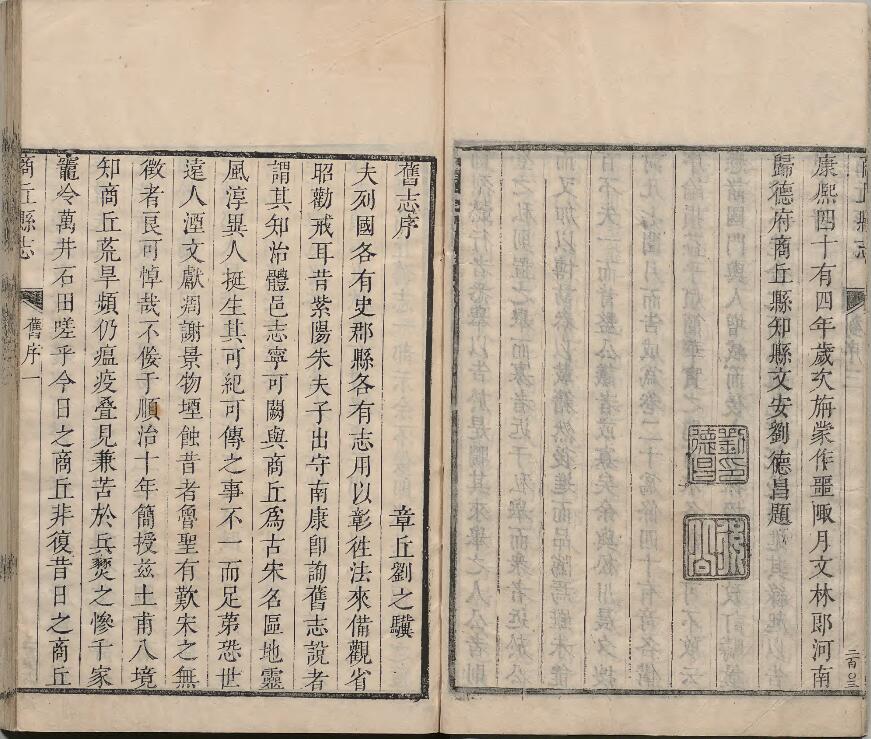 康熙四十有四年歲次旃蒙作噩陬月文林郎河南
歸德府商丘縣知縣文安劉德昌題
劉印德昌
二百〇三
舊志序
章丘劉之驥
夫列國各有史郡縣各有志用以彰徃法來備觀省
昭勸戒耳昔紫陽朱夫子出守南康卽詢舊志說者
謂其知治體邑志寧可闕與商丘爲古宋名區地靈
風淳異人挺生其可紀可傳之事不一而足第恐世
遠人湮文獻凋謝景物堙蝕昔者魯聖有歎宋之無
徵者良可悼哉不佞于順治十年簡授兹土甫八境
知商丘荒旱頻仍瘟疫疊見兼苦於兵燹之慘千家
竈冷萬井石田嗟乎今日之商丘非復昔日之商丘
商丘縣志
舊序
一